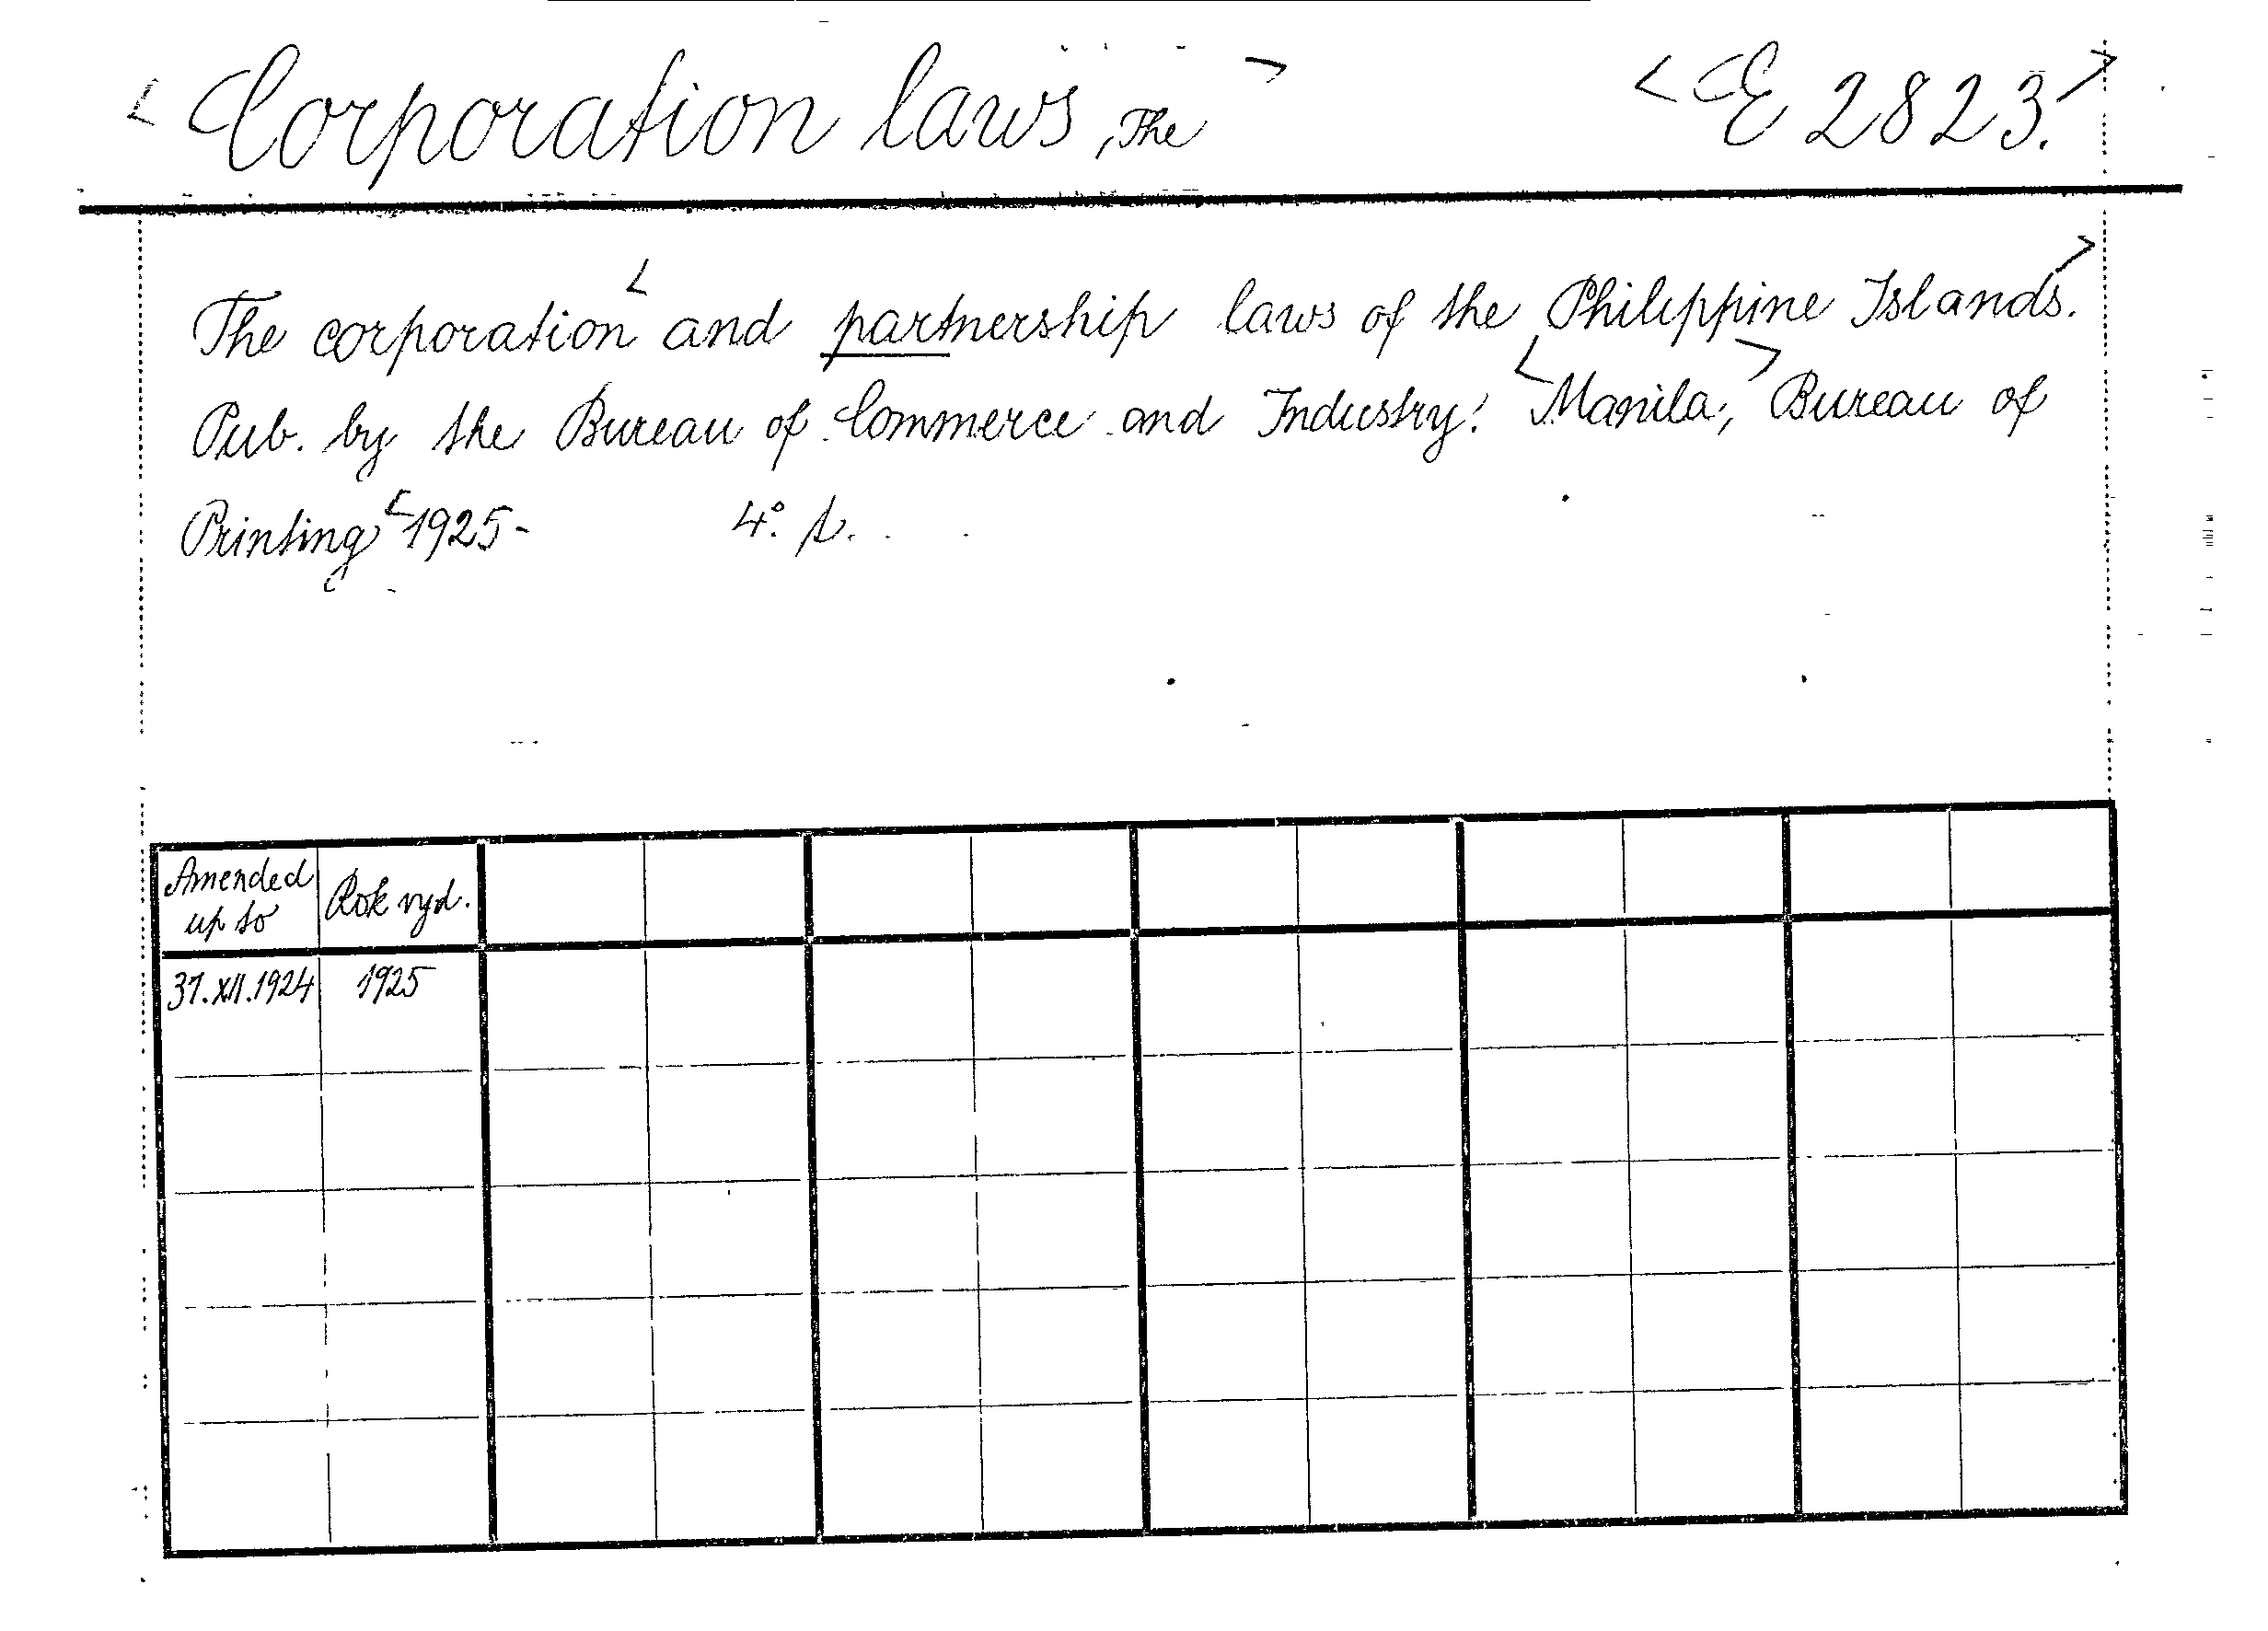 < Corporation laws, The > < E 2823. >
The corporation < and partnership laws of the Philippine Islands. >
Pub. by the Bureau of Commerce and Industry. < Manila, > Bureau of
Printing < 1925- 4°.
Amended up to Rok vyd.
31.XII.1924 1925